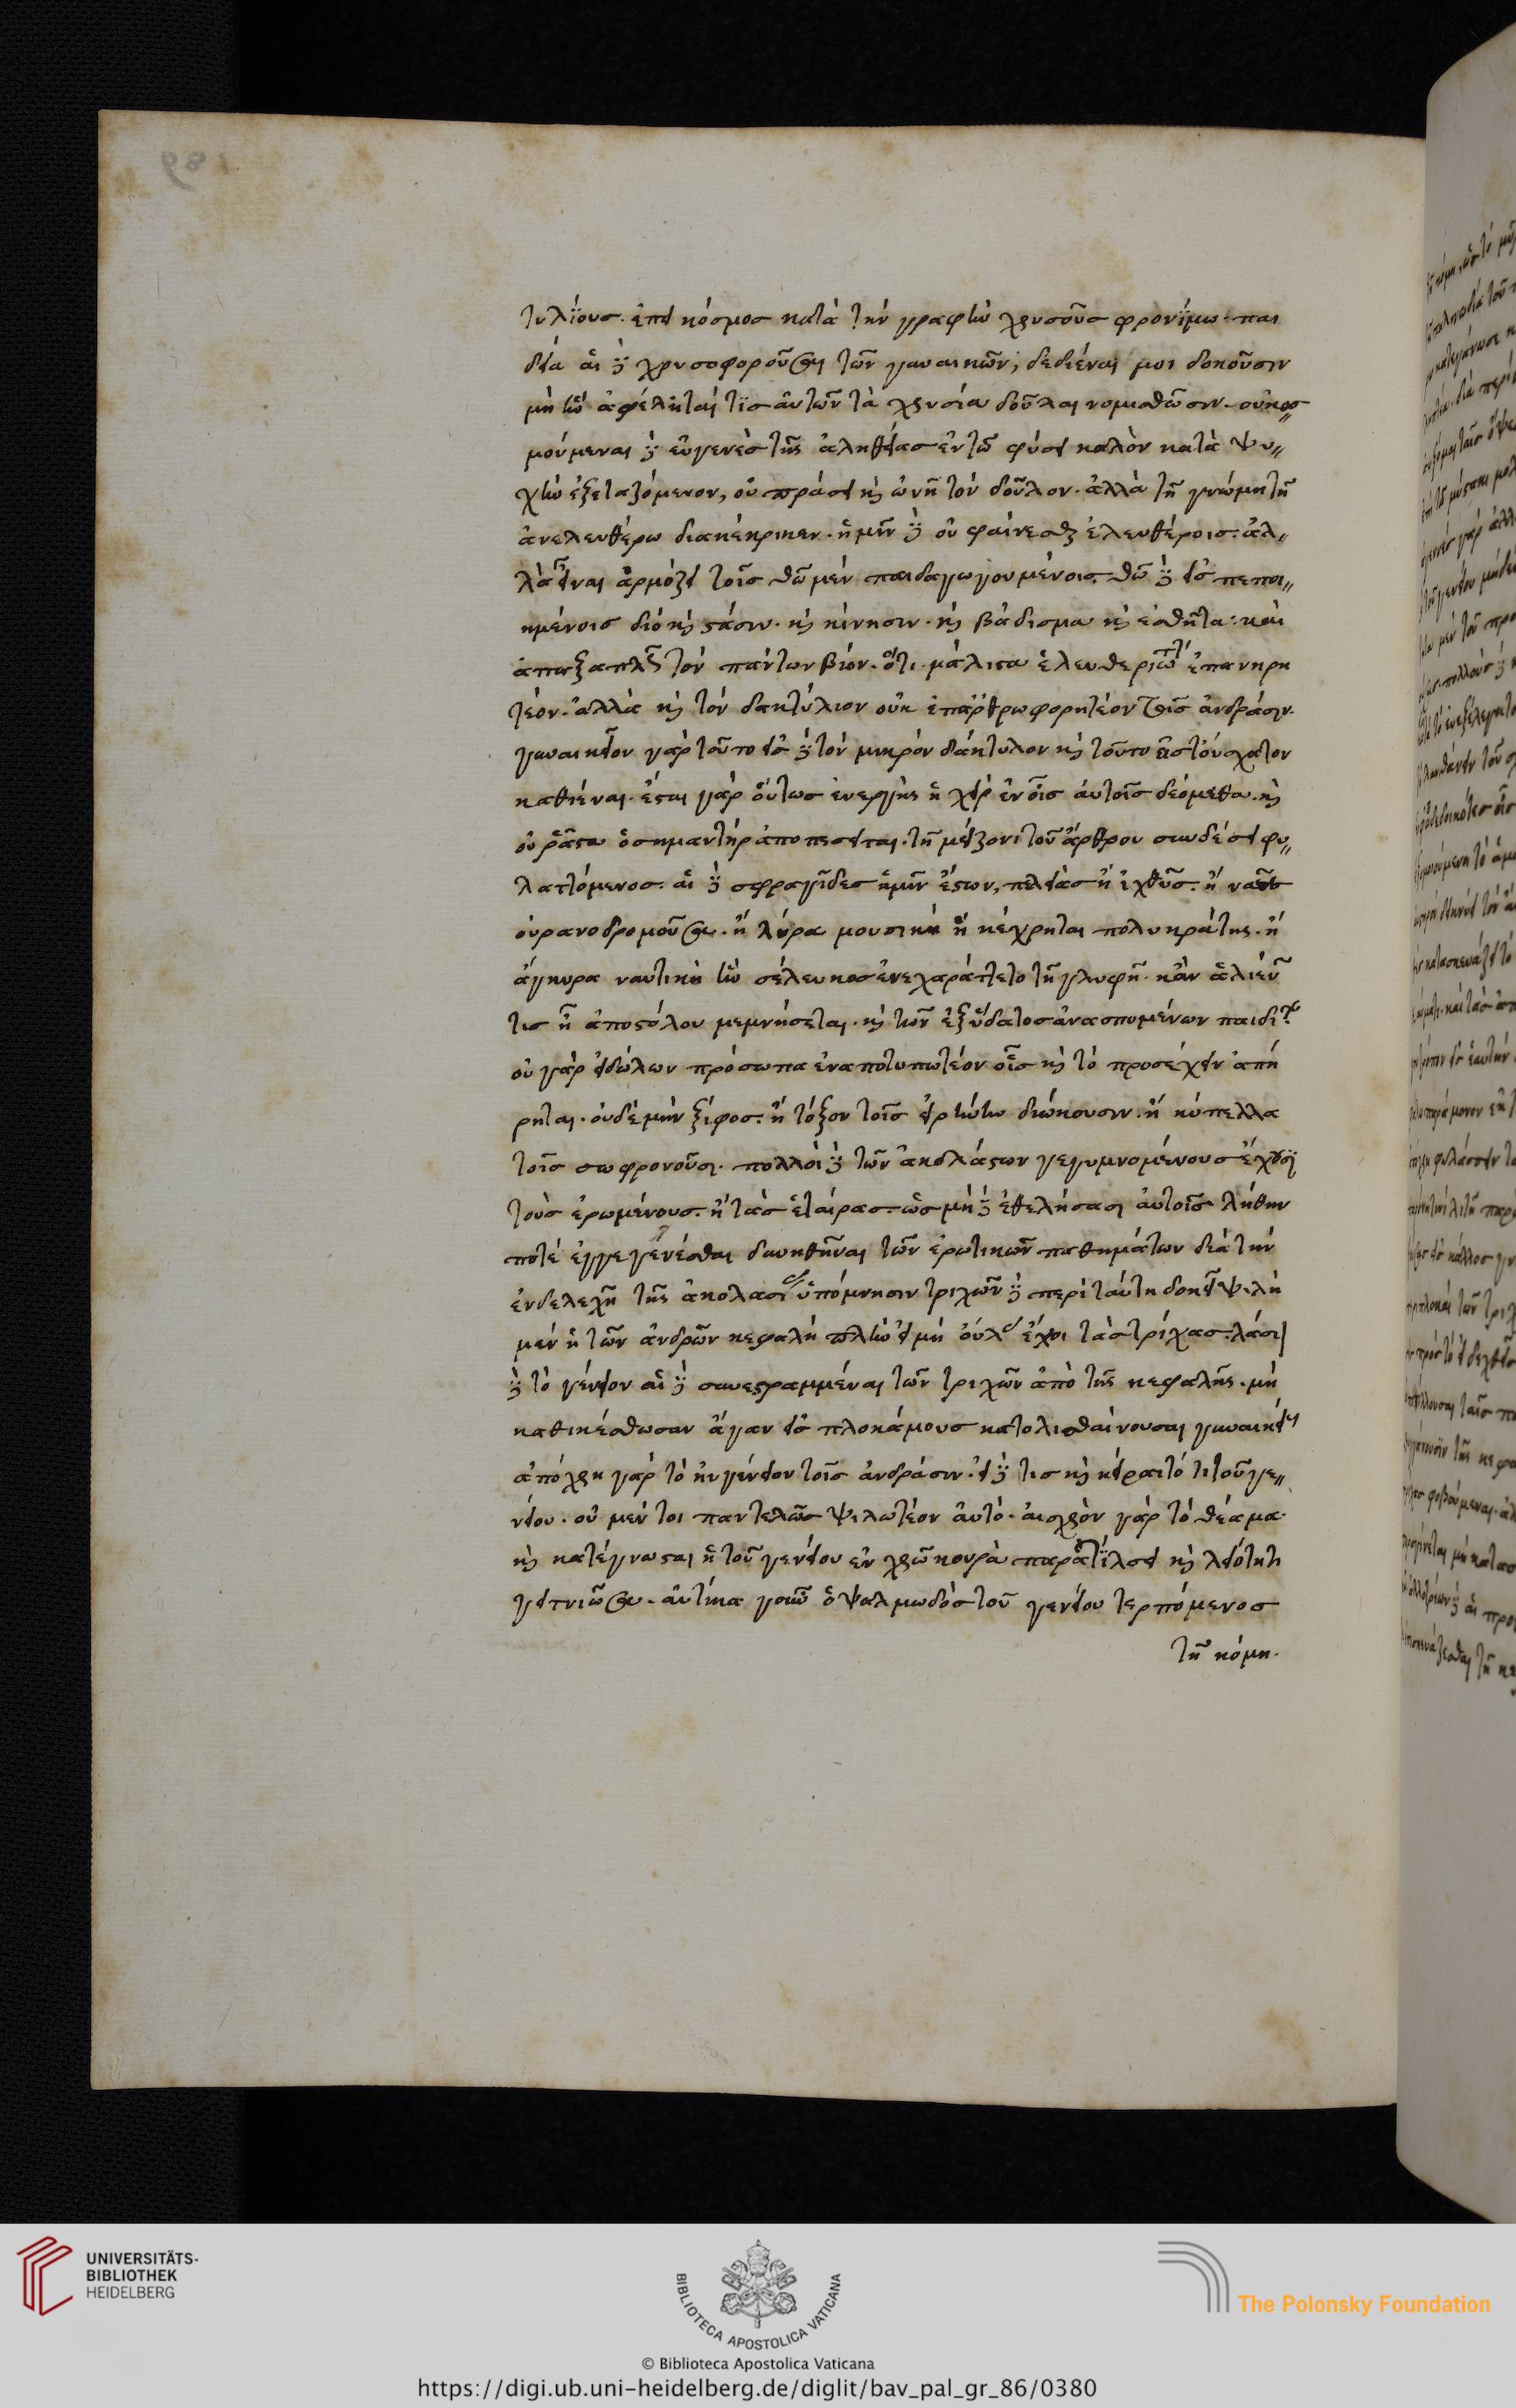 τυλίους. ἐπεὶ κόσμος κατὰ τὴν γραφὴν χρυσοῦς φρονίμω παι
δεία αἱ δὲ χρυσοφοροῦσαι τῶν γυναικῶν, δεδιέναι μοι δοκοῦσιν
μὴ ἢν ἀφέληταί τις αὐτῶν τὰ χρυσία δοῦλαι νομισθῶσιν. οὐ κοσ
μούμεναι δὲ εὐγενὲς τῆς ἀληθείας ἐν τῶ φύσει καλὸν κατὰ ψυ
χὴν ἐξεταζόμενον, οὐ πράσει καὶ ὠνῆ τὸν δοῦλον. ἀλλὰ τῆ γνώμη τῆ
ἀνελευθέρω διακέκρικεν. ἡμῖν δὲ οὐ φαίνεσθαι ἐλευθέροις. ἀλ
λὰ εἶναι ἁρμόζει τοῖς θεῶ μὲν παιδαγωγουμένοις. θεῶ δὲ εἰσπεποι
ημένοις διὸ καὶ στάσιν. καὶ κίνησιν. καὶ βάδισμα καὶ ἐσθῆτα. καὶ
ἁπαξαπλῶς τὸν πάντων βίον. ὅτι μάλιστα ἐλευθεριωτ ἐπανηρη
τέον. ἀλλὰ καὶ τὸν δακτύλιον οὐκ ἐπάρθρω φορητέον τοῖς ἀνδράσιν.
γυναικεῖον γὰρ τοῦτο εἰς δὲ τὸν μικρὸν δάκτυλον καὶ τοῦτο εἰς τοὔσχατον
καθιέναι. ἔσται γὰρ οὕτως ἐνεργὴς ἡ χεὶρ ἐν οἷς αὐτοῖς δεόμεθα. καὶ
οὐ ῥᾶστα ὁ σημαντὴρ ἀποπεσεῖται. τῆ μείζονι τοῦ ἄρθρου συνδέσει φυ
λαττόμενος. αἱ δὲ σφραγῖδες ἡμῖν ἔστων, πελειὰς ἢ ἰχθῦς. ἢ ναῦς
οὐρανοδρομοῦσα. ἢ λύρα μουσικὴ ἧ κέχρηται πολυκράτης. ἢ
ἄγκυρα ναυτικὴ ἣν σέλευκος ἐνεχαράττετο τῆ γλυφῆ. κἂν ἁλιεύ
τις ἦ ἀποστόλου μεμνήσεται. καὶ τῶν ἐξ ὕδατος ἀνασπωμένων παιδί
οὐ γὰρ εἰδώλων πρόσωπα ἐναποτυπωτέον οἷς καὶ τὸ προσέχειν ἀπή
ρηται. οὐδὲ μὴν ξίφος. ἢ τόξον τοῖς εἰρήνην διώκουσιν. ἢ κύπελλα
τοῖς σωφρονοῦσι. πολλοὶ δὲ τῶν ἀκολάστων γεγυμνομένους ἔχουσι
τοὺς ἐρωμένους. ἢ τὰς ἑταίρας. ὡς μὴ δὲ ἐθελήσασι αὐτοῖς λήθην
ποτὲ ἐγγεγενέσθαι δυνηθῆναι τῶν ἐρωτικῶν παθημάτων διὰ τὴν
ἐνδελεχῆ τῆς ἀκολασίας ὑπόμνησιν τριχῶν δὲ περὶ ταύτη δοκεῖ ψιλὴ
μὲν ἡ τῶν ἀνδρῶν κεφαλὴ πλὴν εἰ μὴ οὔλας ἔχοι τὰς τρίχας. λάσι
δὲ τὸ γένειον αἱ δὲ συνεστραμμέναι τῶν τριχῶν ἀπὸ τῆς κεφαλῆς. μὴ
καθικέσθωσαν ἄγαν εἰς πλοκάμους κατολισθαίνουσαι γυναικεί
ἀπόχρη γὰρ τὸ ἠυγένειον τοῖς ἀνδράσιν. εἰ δέ τις καὶ κείραιτό τι τοῦ γε
νείου. οὐ μέν τοι παντελῶς ψιλωτέον αὐτό. αἰσχρὸν γὰρ τὸ θέαμα.
καὶ κατέγνωσται ἡ τοῦ γενείου ἐν χρῶ κουρὰ παρατίλσει καὶ λειότητι
γειτνιῶσα. αὐτίκα γοῦν ὁ ψαλμωδὸς τοῦ γενείου τερπόμενος
τῆ κόμη.
UNIVERSITÄTS-
BIBLIOTHEK
HEIDELBERG
BIBLIOTECA APOSTOLICA VATICANA
The Polonsky Foundation
© Biblioteca Apostolica Vaticana
https://digi.ub.uni-heidelberg.de/diglit/bav_pal_gr_86/0380